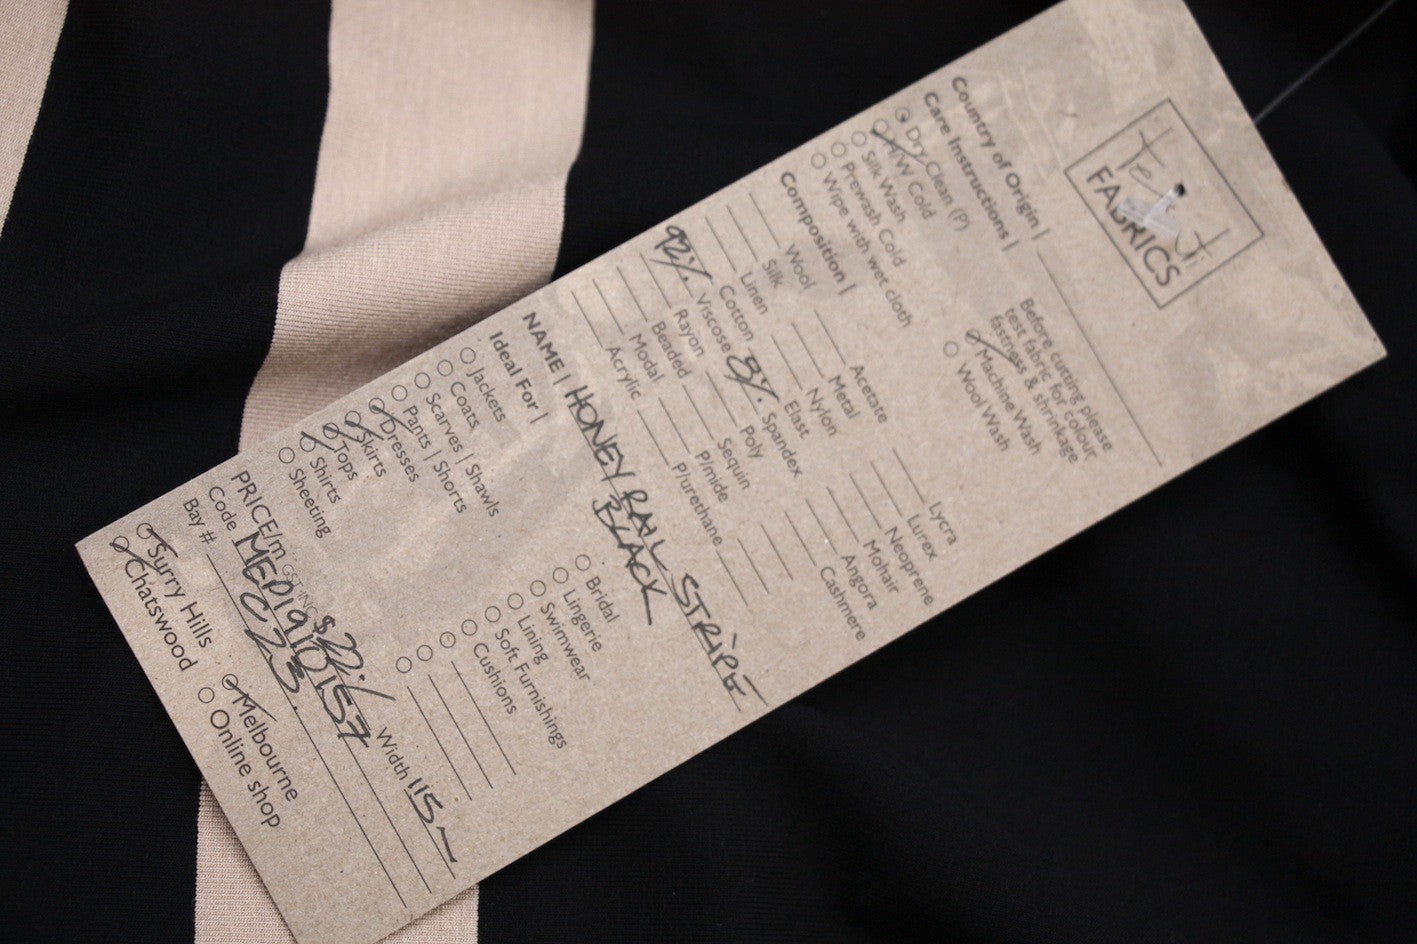 FABRICS
Country of Origin |
Care Instructions |
Dry Clean (P)
H/W Cold
Silk Wash
Prewash Cold
Wipe with wet cloth
Before cutting please
test fabric for colour
fastness & shrinkage
Machine Wash
Wool Wash
Composition |
Wool
Silk
Linen
Cotton
92% Viscose
Rayon
Beaded
Modal
Acrylic
Acetate
Metal
Nylon
Elast
8% Spandex
Poly
Sequin
P/mide
P/urethane
Lycra
Lurex
Neoprene
Mohair
Angora
Cashmere
NAME | HONEY RAIL STRIPE
BLACK
Ideal For |
Jackets
Coats
Scarves | Shawls
Pants | Shorts
Dresses
Skirts
Tops
Shirts
Sheeting
Bridal
Lingerie
Swimwear
Lining
Soft Furnishings
Cushions
PRICE/m GST INC $22 Width 115
Code MED19110157
Bay # C23.
Surry Hills
Chatswood
Melbourne
Online shop